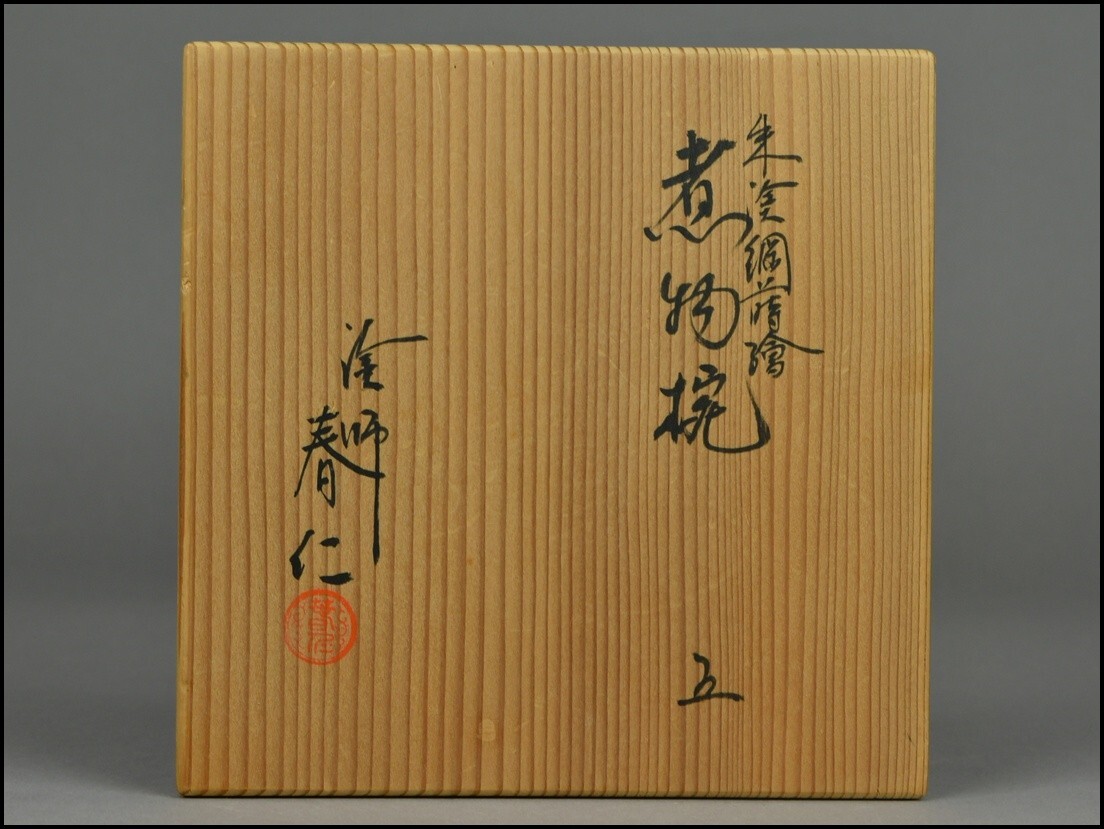 朱塗網蒔繪
煮物椀
五
塗師
春仁